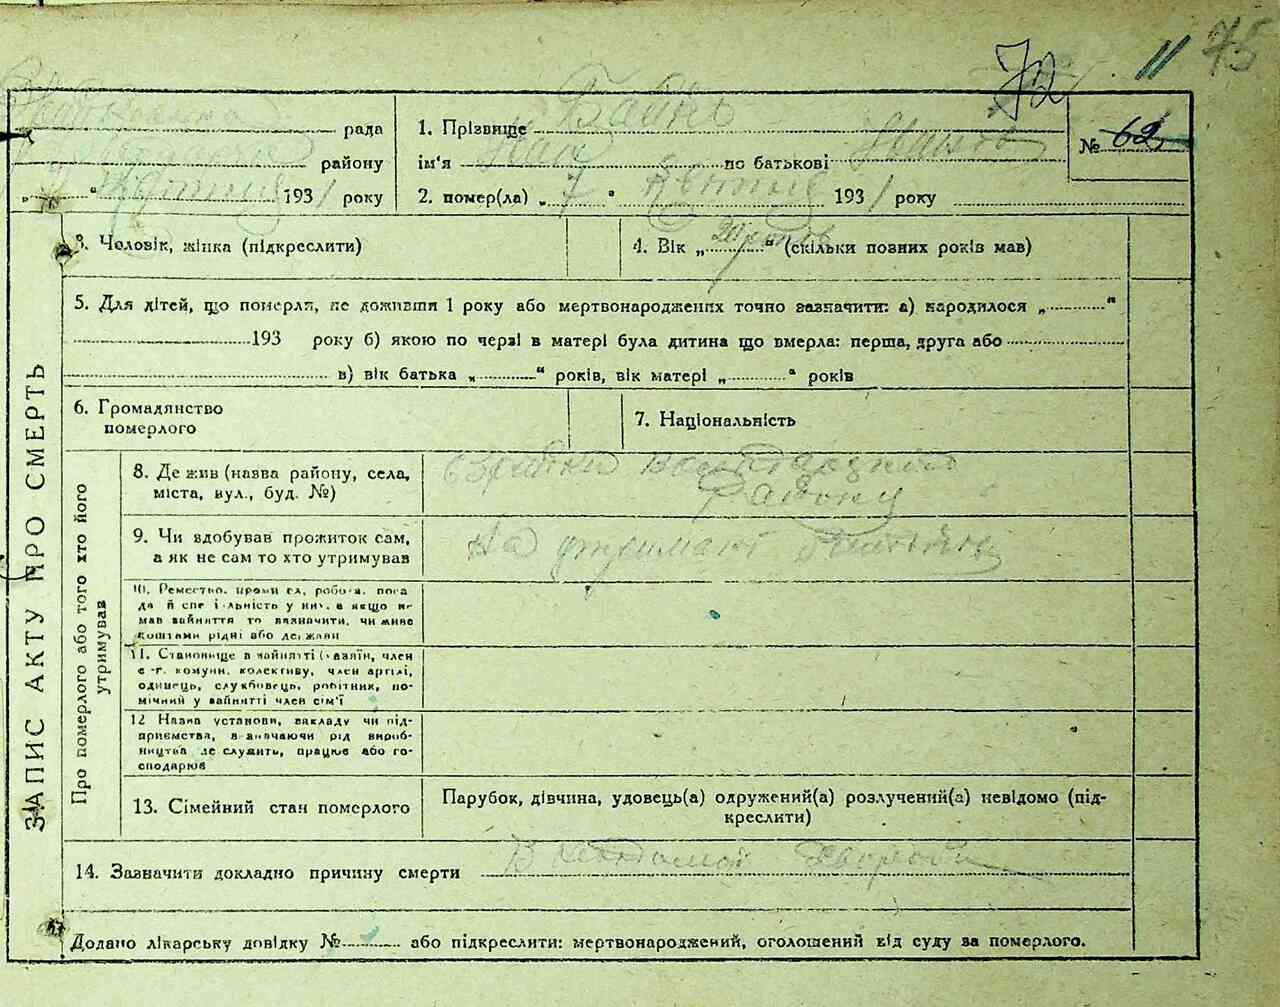 72 11 75
рада
району
193 / року
1. Прізвище
ім'я Іван по батькові Іванов
№ 62
2. помер(ла) „ 7 " 193 / року
3. Чоловік, жінка (підкреслити)
4. Вік „ 20 років " (скільки повних років мав)
5. Для дітей, що померля, не доживши 1 року або мертвонароджених точно зазначити: а) народилося „ "
193 року б) якою по черзі в матері була дитина що вмерла: перша, друга або
в) вік батька „ " років, вік матері „ " років
6. Громадянство
померлого
7. Національність
ЗАПИС АКТУ ПРО СМЕРТЬ
Про померлого або того хто його
утримував
8. Де жив (назва району, села,
міста, вул., буд. №)
району
9. Чи здобував прожиток сам,
а як не сам то хто утримував
на утримані
10. Ремество, промисел, робота, поса
да й спеціальність у них, а якщо не
мав зайняття то зазначити, чи живе
коштами рідні або держави
11. Становище в зайнятті (хазяїн, член
с.-г. комуни, колективу, член артілі,
одинець, службовець, робітник, по-
мічний у зайнятті член сім'ї
12 Назва установи, закладу чи під-
приємства, зазначаючи рід вироб-
ництва де служить, працює або го-
сподарює
13. Сімейний стан померлого
Парубок, дівчина, удовець(а) одружений(а) розлучений(а) невідомо (під-
креслити)
14. Зазначити докладно причину смерти
Додано лікарську довідку № або підкреслити: мертвонароджений, оголошений від суду за померлого.